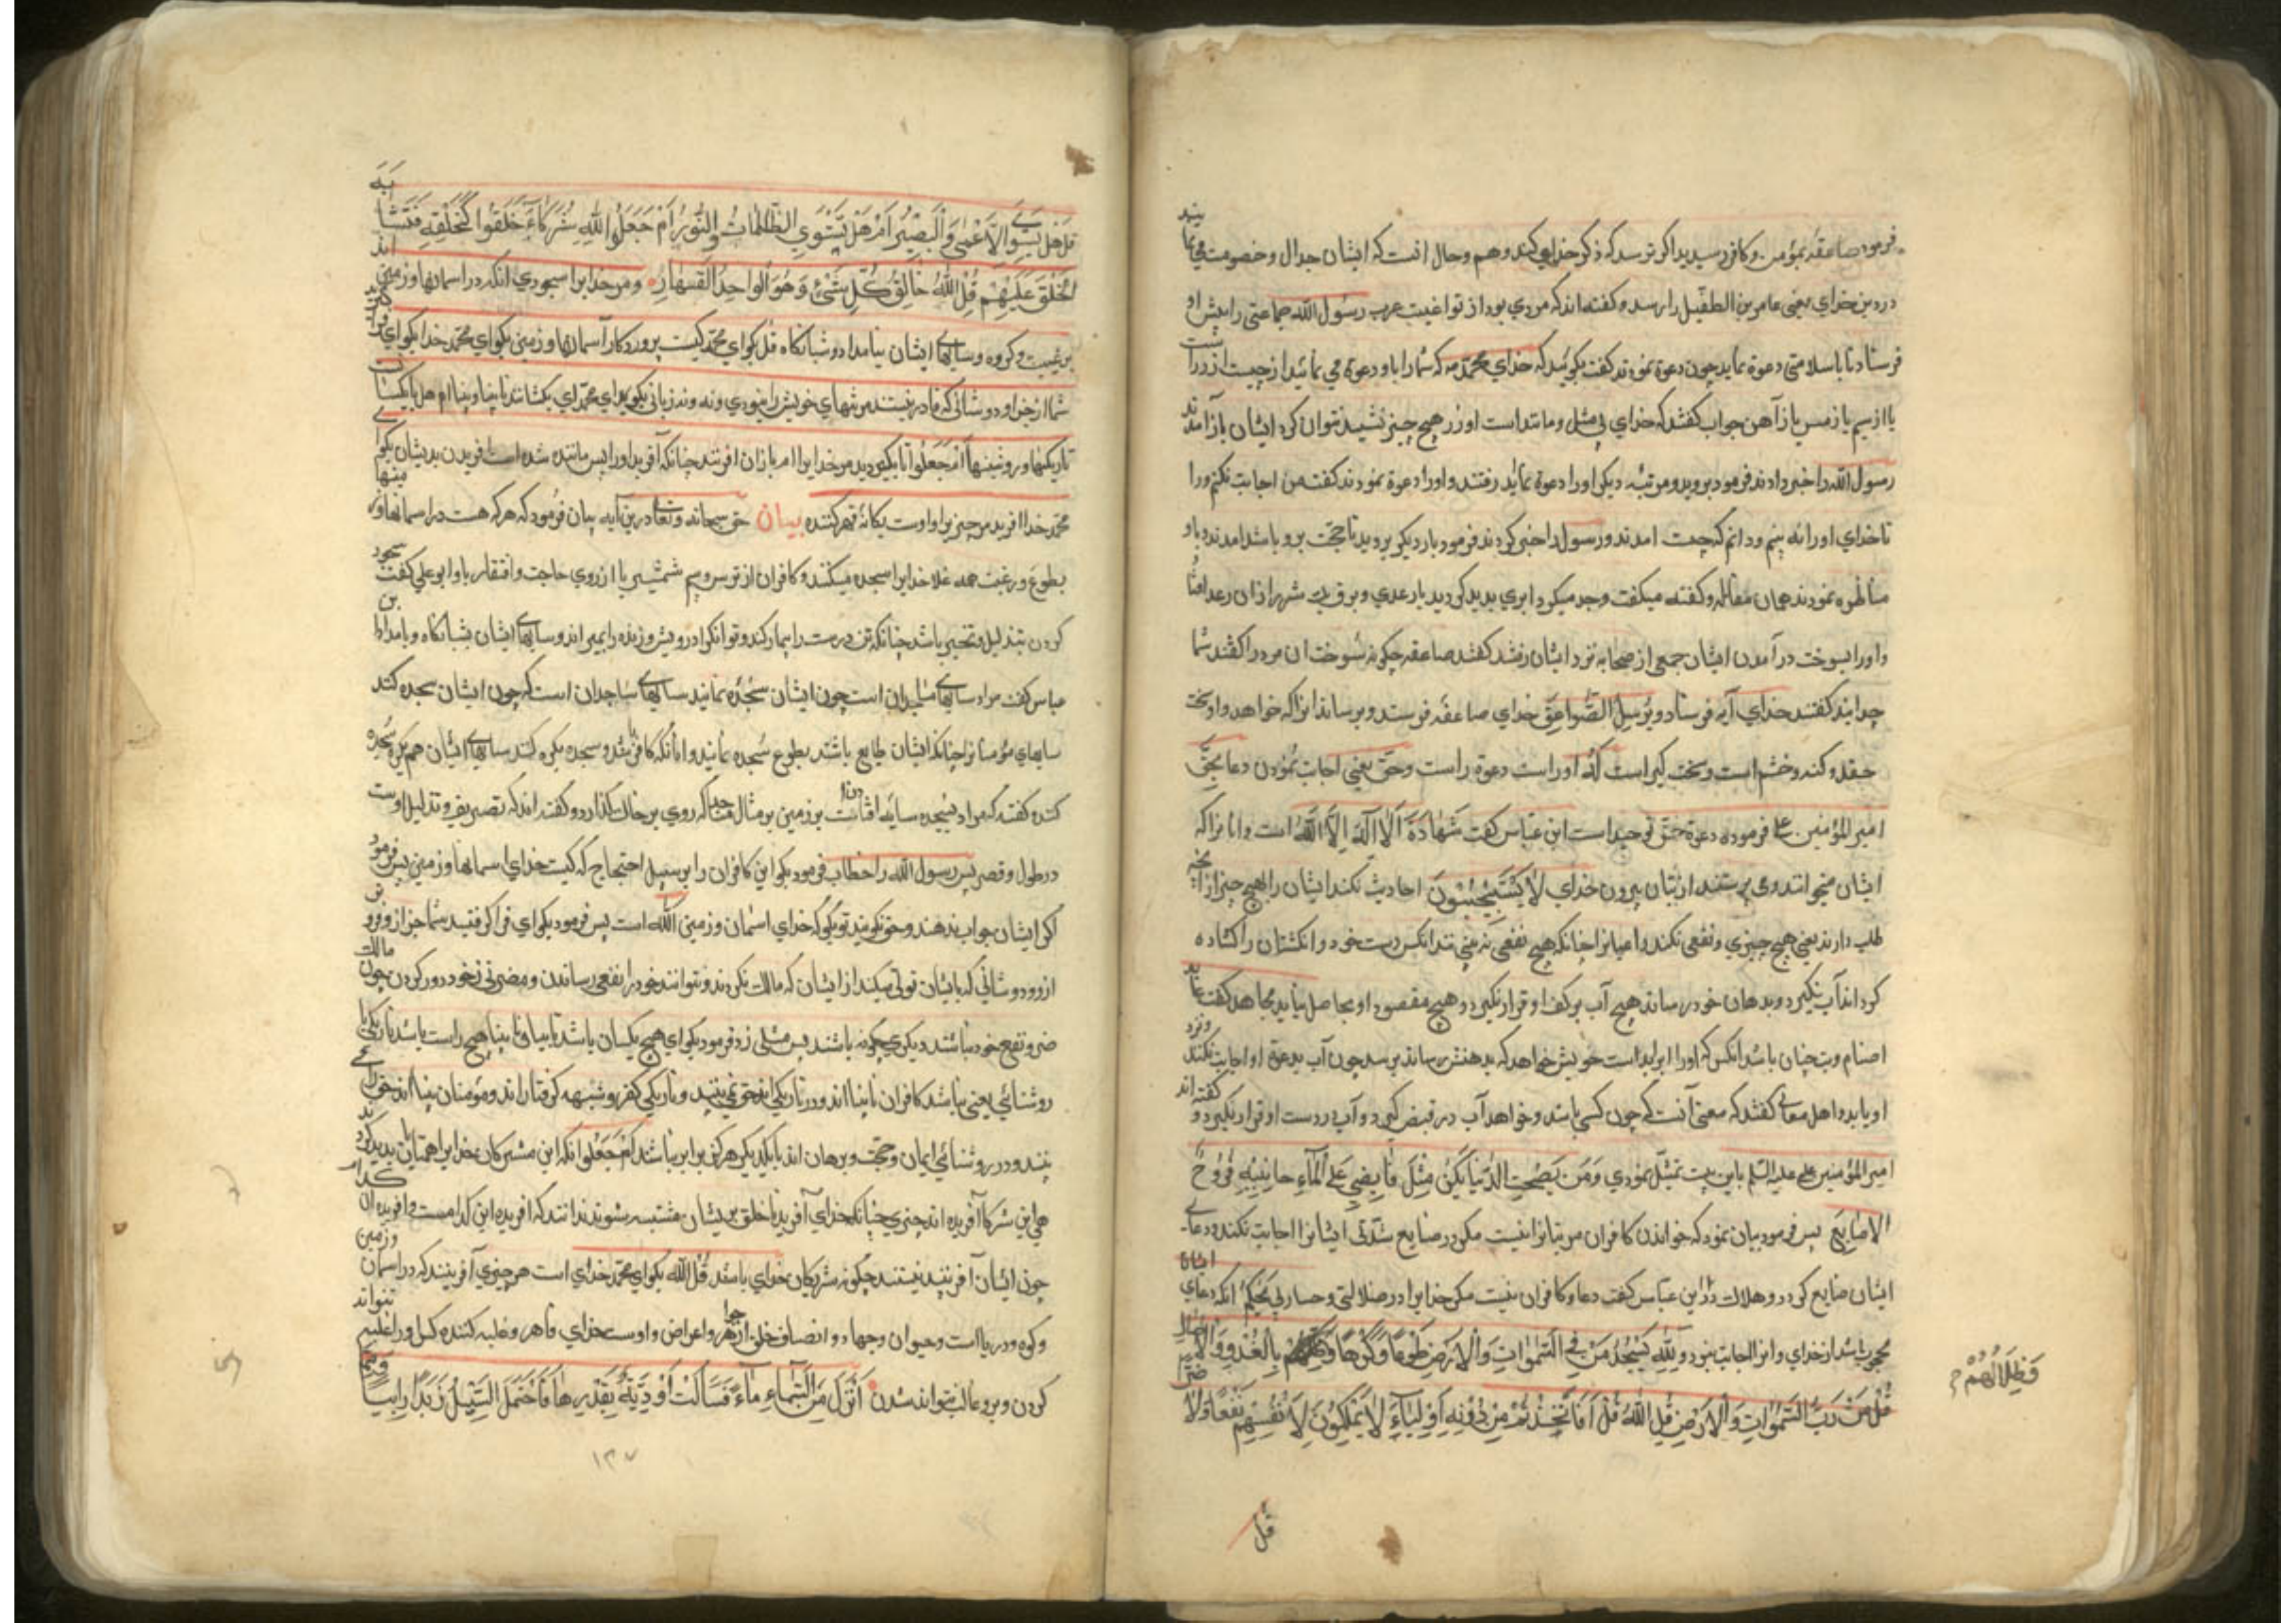 فرمود صاعقه بمؤمن و كافر رسيد يدا كر نرسد كه ذكر خداي كند وهم وحال انست كه ايشان جدال وخصومت مي نمايند
در دين خداي يعني عامر بن الطفيل را رسد و كفته اند كه مردي بود از تواغيت عرب رسول الله جماعتي را پيش او
فرستاد تا باسلامش دعوة نمايد چون دعوة نمودند كفت بكوئيد كه خداي محمد مر كه شما را باو دعوة مي نمائيد از چيست از زر است
يا از سيم يا از مس يا از آهن جواب كفتند كه خداي بي مثل و مانند است او زر هيچ چيز تشبيه نتوان كرد ايشان باز آمدند
رسول الله را خبر دادند فرمود برويد و مرتبه ديكر او را دعوة نمايد رفتند و او را دعوة نمودند كفت من اجابت نكنم ورا
تا خداي او را نه بينم و دانم كه چيست امدند و رسول را خبر كردند فرمود بار ديكر برويد تا حجت برو باشد امدند و باو
مناظره نمودند همان مقاله و كفته ميكفت وجد ميكرد ابري بديد كرديد با رعدي و برقي شرر از ان رعد افتاد
و او را بسوخت در آمدن ايشان جمعي از صحابه نزد ايشان رفتند كفتند صاعقه چكونه سوخت ان مرد را كفتند شما
چه دانيد كفتند خداي آيه فرستاد ويرسل الصواعق خداي صاعقه فرستد و برساند انرا كه خواهد و او سخت
حقد و كنه و خشم است و سخت كير است له او راست دعوة راست وحق يعني اجابت نمودن دعا بحق
امير المؤمنين علي فرموده دعوة حق توحيد است ابن عباس كفت شهادة الا اله الا الله است وانانرا كه
ايشان ميخوانند ومي پرستند از بتان بيرون خداي لا يستجيبون اجابت نكند ايشان را بهيچ چيز از انچه
طلب دارند يعني هيچ چيزي ونفعي نكند داعيانرا چنانكه هيچ نفعي نه بيند انكس دست خود و انكشتان را كشاده
كرداند آب نكيرد و بدهان خود رساند هيچ آب بر كف او قرار نكيرد و هيچ مقصود او بحاصل نيايد مجاهد كفت عابد
اصنام وبت چنان باشد انكس كه او را ابرايد است خويش خواهد كه بدهنش رساند برسد چون آب بدعوة او اجابت نكند ونزد
او يايد و اهل معاني كفتند كه معني آنست كه چون كسي باشد و خواهد آب در قبض كيرد و آب در دست او قرار نكيرد و كفته اند
امير المؤمنين علي عليه السلم باين بيت تمثل نمودي ومن يصحب الدنيا يكن مثل قابض علي المآء خانته فروج
الاصابع پس فرمود بيان نمود كه خواندن كافران مر بتانرا نيست مكر در ضايع شدني ايشانرا اجابت نكند و دعاي
ايشان ضايع كردد و هلاك دزاين عباس كفت دعاء كافران نيست مكر خدايرا در ضلالتي وخسار بي بحكم انكه دعاي ايشان
محجوب باشد از خداي و انرا اجابت نبود ولله يسجد من في السموات والارض طوعا وكرها وظلالهم بالغدو والاصال
قل من رب السموات والارض قل الله قل افاتخذتم من دونه اولياء لا يملكون لانفسهم نفعا ولا ضرا
وظلالهم
قل
قل هل يستوي الاعمي والبصير ام هل تستوي الظلمات والنور ام جعلوا لله شركاء خلقوا كخلقه فتشابه
الخلق عليهم قل الله خالق كل شيء وهو الواحد القهار ومر خدايرا سجودي انكه در اسمانها و زمين اند
برغبت و كروه و سايهاء ايشان بامداد و شبانكاه قل بكو اي محمد كيست پروردكار آسمانها و زمين بكو اي محمد خدا بكو اي
شما از جز او دوستاني كه قادر نيستند مر تنهاي خويش را نه سودي و نه زياني بكو اي محمد اي يكسانند نابينا و بينا ام هل يا يكسان
تاريكيها و روشنيها ام جعلوا آيا بكرديدند مر خدايرا انبازان افريدند چنانكه آفريد او پس مانند شده است افريدن بديشان بكو
محمد خدا افريد هر چيز يرا و اوست يكانه قهر كننده بيان حق سبحانه وتعالي درين آيه بيان فرمود كه هر كه هست در اسمانها و زمينها
بطوع و رغبت همه خدايرا سجده ميكنند و كافران از ترس و بيم شمشير يا از روي حاجت و افتقار باو ابو علي كفت سجود
كردن بتذليل و تخيير باشد چنانكه تن درست را بيمار كند و توانكر را درويش و زنده را بميراند و سايهاء ايشان بشبانكاه و بامداد ابن
عباس كفت مراد سايهاء ساجدان است چون ايشان سجده نمايند سايهاء ساجدان است كه چون ايشان سجده كنند
سايهاي مؤمنانرا چنانكه ايشان طايع باشند بطوع سجده نمايند و انانكه كافرانند و سجده بكره كنند سايهاء ايشان هم بكره سجده
كنند و كفته كه مراد بسجده سايه افتادنست بر زمين بر مثال انكه روي بر خاك كذارد و كفته اند كه تصريف و تذليل اوست
در طول و قصر پس رسول الله را خطاب فرمود بكو اين كافران را بر سبيل احتجاج كه كيست خداي اسمانها و زمين پس فرمود
اكر ايشان جواب ندهند و حق نكويند تو بكو كه خداي اسمان و زمين الله است پس فرمود بكو اي فرا كرفتيد شما جز از و فرو
از و دوستاني كه بايشان تولي ميكنند از ايشان كه مالك نكردند و نتوانند خود را نفعي رساندن و مضرتي از خود دور كردن چون مالك
ضر و نفع خود نباشند ديكري چكونه باشند پس مثلي زد فرمود بكو اي هيچ يكسان باشد نابينا و بينا هيچ راست باشد تاريكي با
روشنائي يعني نباشد كافران نابينا اند و در تاريكي اند حق نمي بينند و تاريكي كفر و شبهه كرفتاراند و مؤمنان بينا اند حق را مي
بينند و در روشنائي ايمان و حجت و برهان اند با يكديكر هركز برابر نباشند ام جعلوا انكه اين مشركان خدايرا همتايان بديد كردند
هي اين شركا آفريده اند چيزي چنانكه خداي آفريد تا خلق بريشان مشتبه شوند ندانند كه افريده اين كدامست و افريده ان كدام
چون ايشان آفريننده نيستند چكونه شريكان خداي باشند قل الله بكو اي محمد خداي است هر چيزي آفريننده كه در اسمان و زمين
و كوه و در ياست و حيوان و جماد و انصاف خلق از جواهر و اعراض و اوست خداي قاهر و غلبه كننده كس او را غلبه نتواند
كردن و برو غالب نتواند شدن انزل من السمآء مآء فسالت اودية بقدرها فاحتمل السيل زبدا رابيا ومما
١٣٧